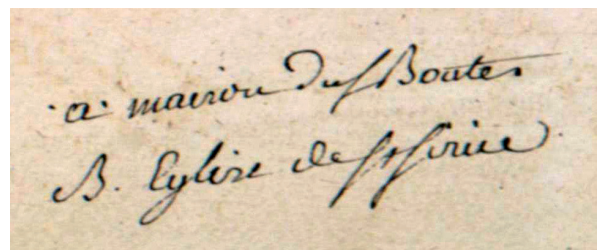 a. maison du Sr Boutes
B. Eglise de St Sirice